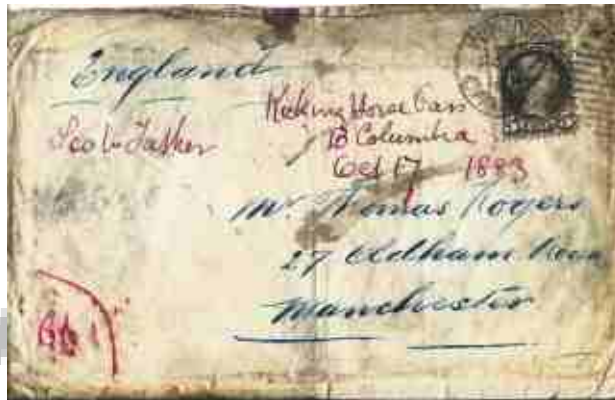 England
Kicking Horse Pass
B Columbia
Oct 17 1883
Mr. Thomas Rogers
27 Oldham Road
Manchester